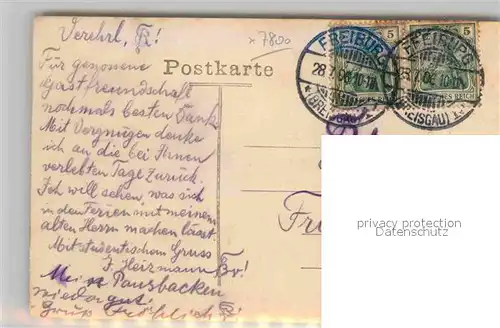 Verehrl. !
* 7800
Postkarte
FREIBURG
28.7.06.10-11
(BREISGAU)
5
FREIBURG
28.7.06.10-11
(BREISGAU)
5
DEUTSCHES REICH
Für genossene
Gastfreundschaft
nochmals besten Dank
Mit Vergnügen denke
ich an die bei Ihnen
verlebten Tage zurück.
Ich will sehen, was sich
in den Ferien mit meinem
alten Herrn machen lässt.
Mit studentischem Gruss
F. Heizmann
Pausbacken
wieder gut.
Gruss
Fr
privacy protection
Datenschutz